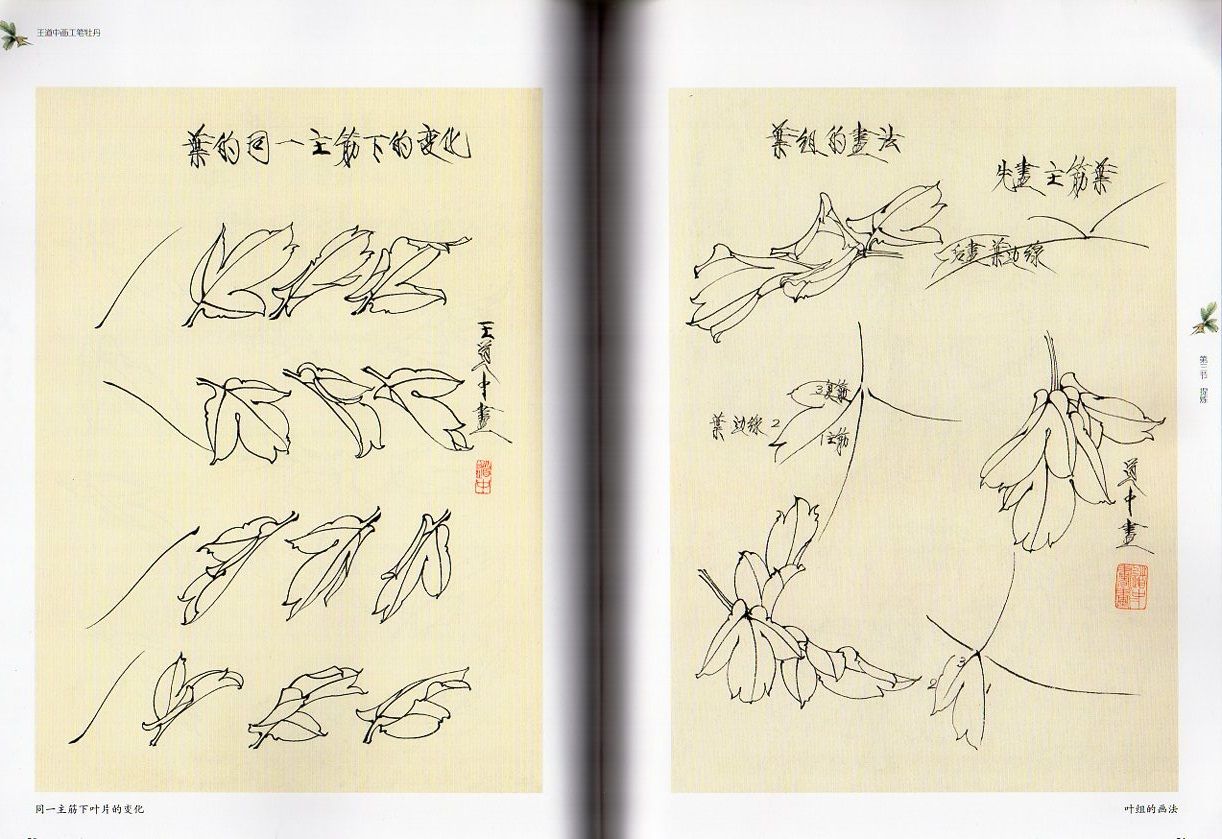 王道中画工笔牡丹
葉的同一主筋下的变化
王道中畫
同一主筋下叶片的变化
葉组的畫法
先畫主筋葉
后畫葉边線
3复葉
葉边線2
1主筋
道中畫
3
2
1
第三节
叶组的画法